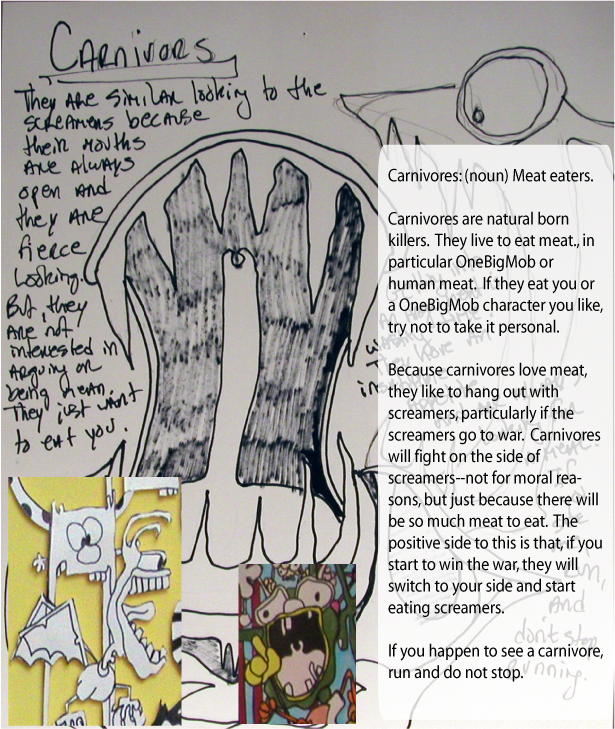 CARNIVORS
They ARE SIMILAR looking to the
SCREAMERS because
their mouths
ARE Always
open And
they ARE
fierce
looking.
But, they
ARE not
interested in
Arguing or
being mean.
They just want
to eat you.
Carnivores: (noun) Meat eaters.
Carnivores are natural born
killers. They live to eat meat., in
particular OneBigMob or
human meat. If they eat you or
a OneBigMob character you like,
try not to take it personal.
Because carnivores love meat,
they like to hang out with
screamers, particularly if the
screamers go to war. Carnivores
will fight on the side of
screamers--not for moral rea-
sons, but just because there will
be so much meat to eat. The
positive side to this is that, if you
start to win the war, they will
switch to your side and start
eating screamers.
If you happen to see a carnivore,
run and do not stop.
run,
And
don't stop
running.